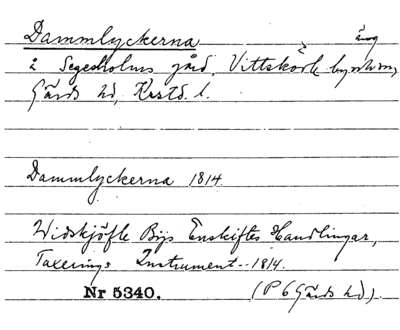 Dammlyckerna äng
å Segesholms gård, Vittskövle byområde,
Gärds hd, Krstd. l.
Dammlyckerna 1814
Widskjöfle Bys Enskiftes Handlingar,
Taxerings Instrument -- 1814.
Nr 5340. (P 6 Gärds hd).